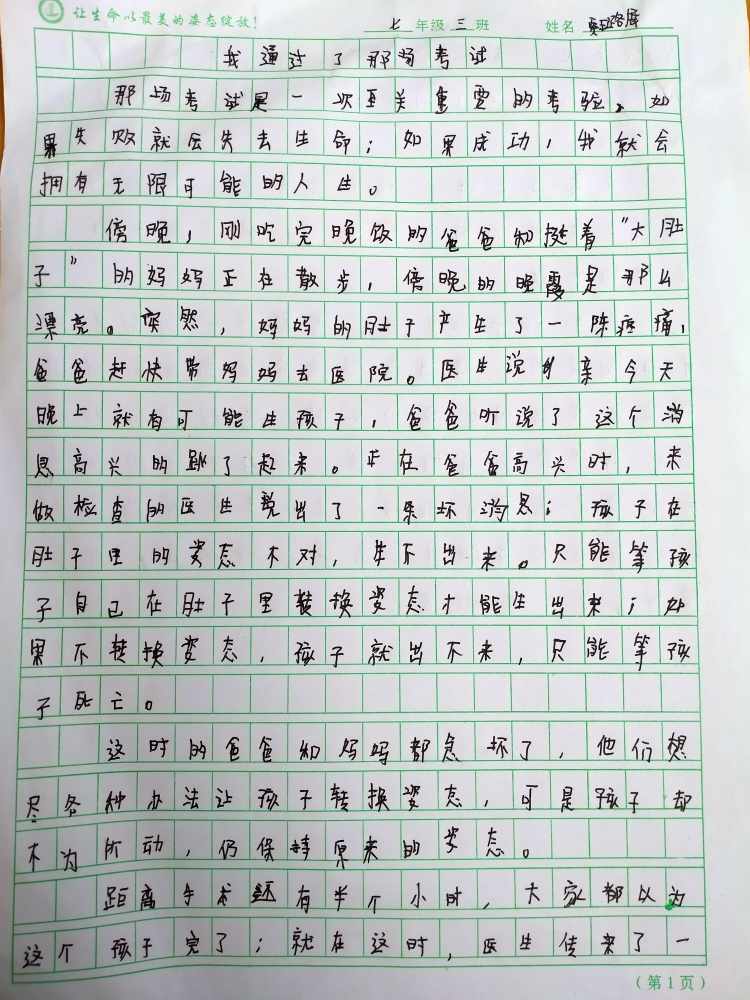 让生命以最美的姿态绽放！
七年级三班 姓名
我通过了那场考试
那场考试是一次至关重要的考验。如
果失败就会失去生命；如果成功，我就会
拥有无限可能的人生。
傍晚，刚吃完晚饭的爸爸和挺着“大肚
子”的妈妈正在散步，傍晚的晚霞是那么
漂亮。突然，妈妈的肚子产生了一阵疼痛，
爸爸赶快带妈妈去医院。医生说母亲今天
晚上就有可能生孩子，爸爸听说了这个消
息高兴的跳了起来。正在爸爸高兴时，来
做检查的医生说出了一条坏消息；孩子在
肚子里的姿态不对，生不出来。只能等孩
子自己在肚子里转换姿态才能生出来；如
果不转换姿态，孩子就出不来，只能等孩
子死亡。
这时的爸爸和妈妈都急坏了，他们想
尽各种办法让孩子转换姿态，可是孩子却
不为所动，仍保持原来的姿态。
距离手术还有半个小时，大家都以为
这个孩子完了；就在这时，医生传来了一
（第1页）